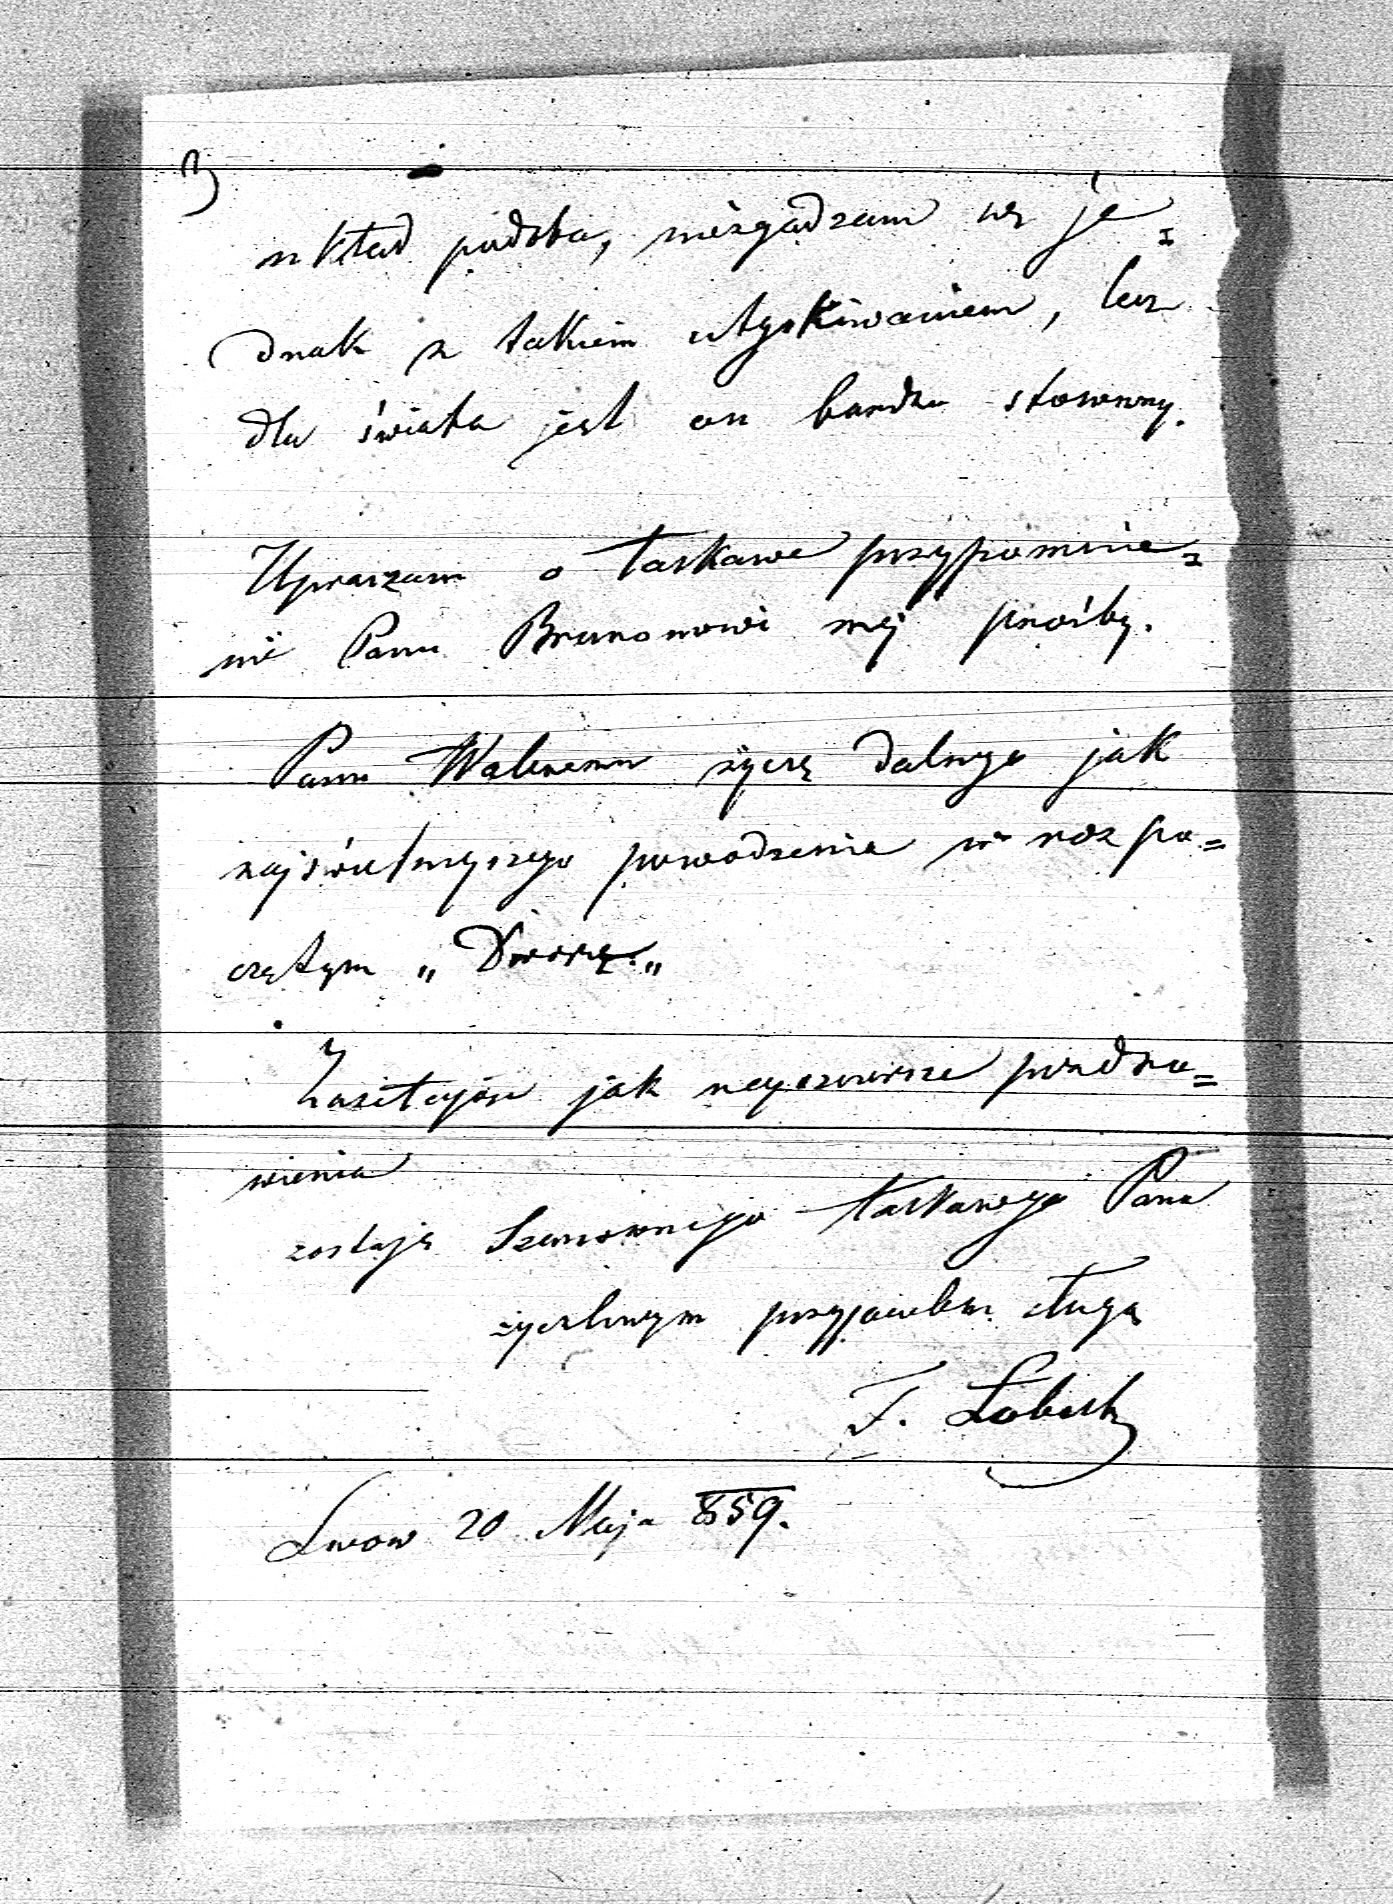 3
układ podoba, niezgadzam się je=
dnak z takiem utyskiwaniem, lecz
dla świata jest on bardzo stosowny.
Upraszam o łaskawe przypomnie=
nie Panu Brunonowi mej prośby.
Panu Waleremu życzę dalszego jak
najświetniejszego powodzenia w rozpo=
czętym „
Zasełając jak najczulsze pozdro=
wienia
zostaję Szanownego łaskawego Pana
życzliwym przyjacielem sługą
F. Łobesk
Lwow 20 Maja 859.